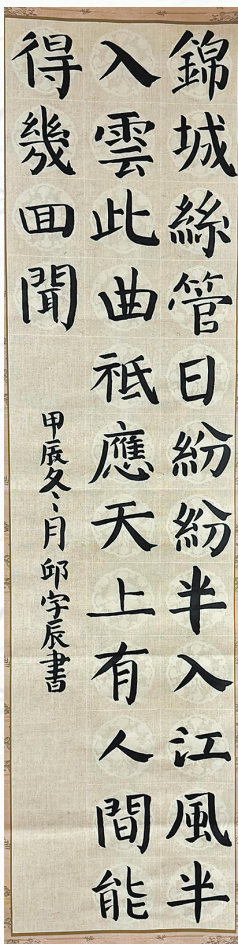 錦城絲管日紛紛半入江風半
入雲此曲祗應天上有人間能
得幾回聞
甲辰冬月邱宇辰書